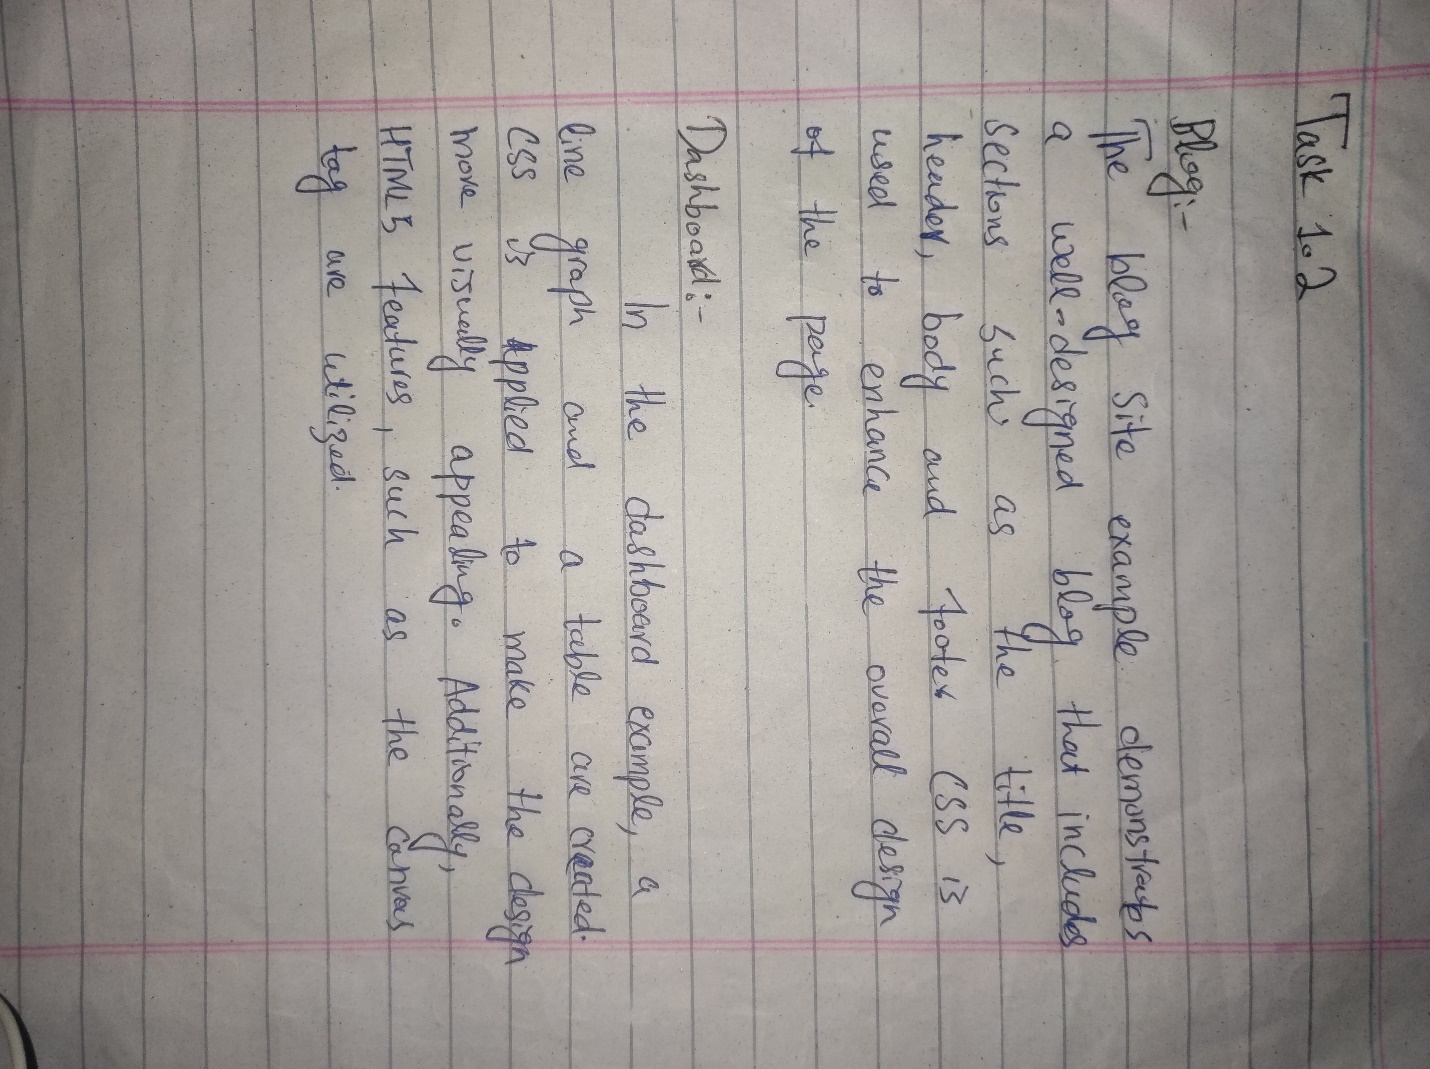 Task 1.2
Blog:-
The blog site example demonstrates
a well-designed blog that includes
sections such as the title,
header, body and footer CSS is
used to enhance the overall design
of the page.
Dashboard:-
In the dashboard example, a
line graph and a table are created.
CSS is applied to make the design
more visually appealing. Additionally,
HTML5 features, such as the canvas
tag are utilized.